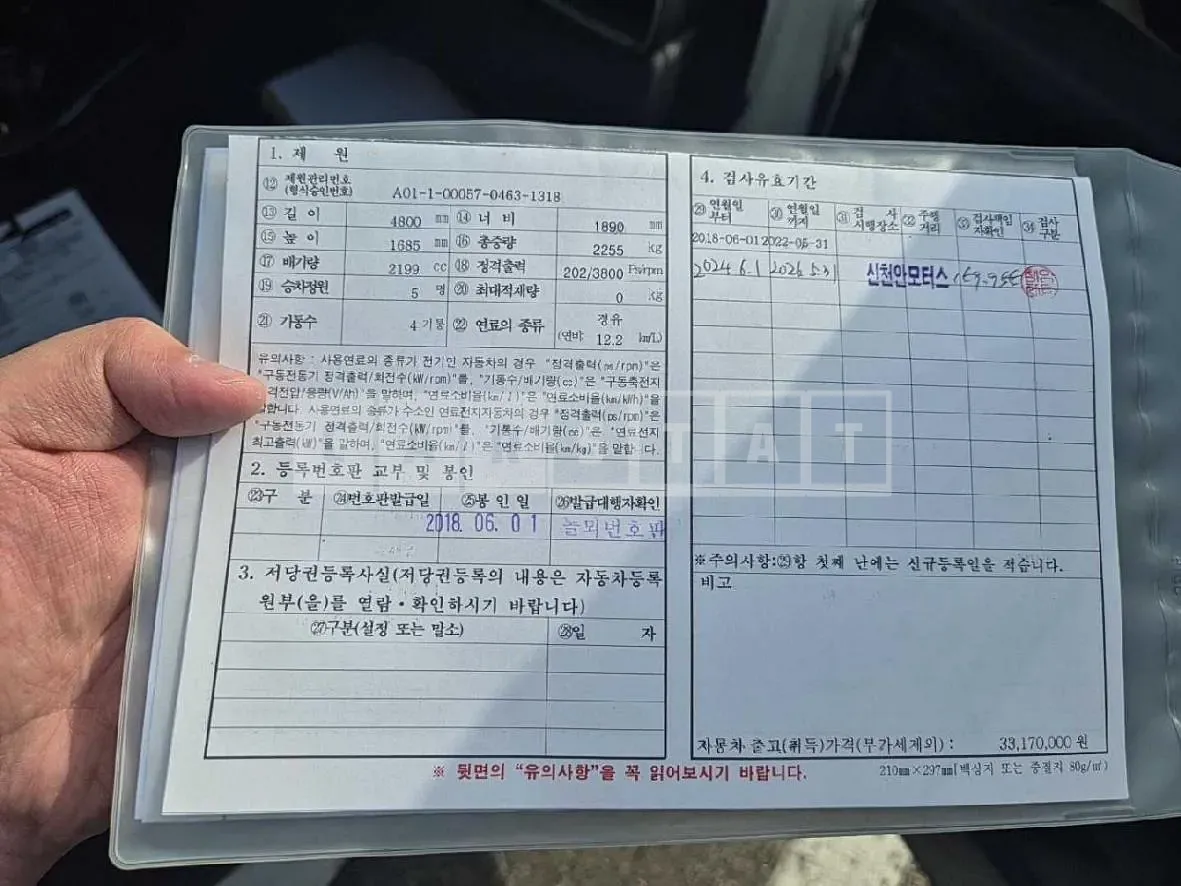 1. 제 원
⑫ 제원관리번호 (형식승인번호) A01-1-00057-0463-1318
⑬ 길 이 4800 mm ⑭ 너 비 1890 mm
⑮ 높 이 1685 mm ⑯ 총중량 2255 kg
⑰ 배기량 2199 cc ⑱ 정격출력 202/3800 Ps/rpm
⑲ 승차정원 5 명 ⑳ 최대적재량 0 kg
㉑ 기통수 4 기통 ㉒ 연료의 종류 경유
(연비: 12.2 km/L)
유의사항 : 사용연료의 종류가 전기인 자동차의 경우 "정격출력(ps/rpm)"은
"구동전동기 정격출력/회전수(kW/rpm)"를, "기통수/배기량(cc)"은 "구동축전지
격전압/용량(V/Ah)"을 말하며, "연료소비율(km/l)"은 "연료소비율(km/kWh)"을
합니다. 사용연료의 종류가 수소인 연료전지자동차의 경우 "정격출력(ps/rpm)"은
"구동전동기 정격출력/회전수(kW/rpm)"를, "기통수/배기량(cc)"은 "연료전지
최고출력(kW)"을 말하며, "연료소비율(km/l)"은 "연료소비율(km/kg)"을 말합니다.
2. 등록번호판 교부 및 봉인
㉓구 분 ㉔번호판발급일 ㉕봉 인 일 ㉖발급대행자확인
2018. 06. 0 1 늘뫼번호판
3. 저당권등록사실(저당권등록의 내용은 자동차등록
원부(을)를 열람·확인하시기 바랍니다)
㉗구분(설정 또는 말소) ㉘일 자
4. 검사유효기간
㉙ 연월일 부터 ㉚ 연월일 까지 ㉛ 검 사 시행장소 ㉜ 주행 거리 ㉝ 검사책임 자확인 ㉞ 검사 구분
2018-06-01 2022-05-31
2024 6. 1 2026 5. 31 신천안모터스
※주의사항:㉙항 첫째 난에는 신규등록일을 적습니다.
비고
자동차 출고(취득)가격(부가세제외) : 33,170,000 원
※ 뒷면의 "유의사항"을 꼭 읽어보시기 바랍니다.
210㎜×297㎜[백상지 또는 중질지 80g/㎡)